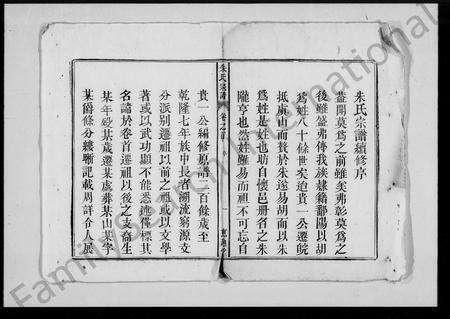 朱氏宗譜續修序
蓋聞莫為之前雖美弗彰莫為之
後雖盛弗傳我族隸籍鄱陽以胡
為姓八十餘世矣迨貴一公遷皖
抵虞山而贅於朱遂易胡而以朱
為姓是姓也昉自懷邑册名之朱
隴亨也然姓雖易而祖不可忘自
朱氏宗譜 卷之首 序
貴一公編修原譜二百餘歲至
乾隆七年族中長者溯流窮源支
分派別遷祖以前之祖或以文學
著或以武功顯不能悉述僅標其
名諱於卷首遷祖以後之支裔生
某年歿某歲遷某處葬某山某字
某爵條分縷晰記載周詳令人展
FamilySearch International